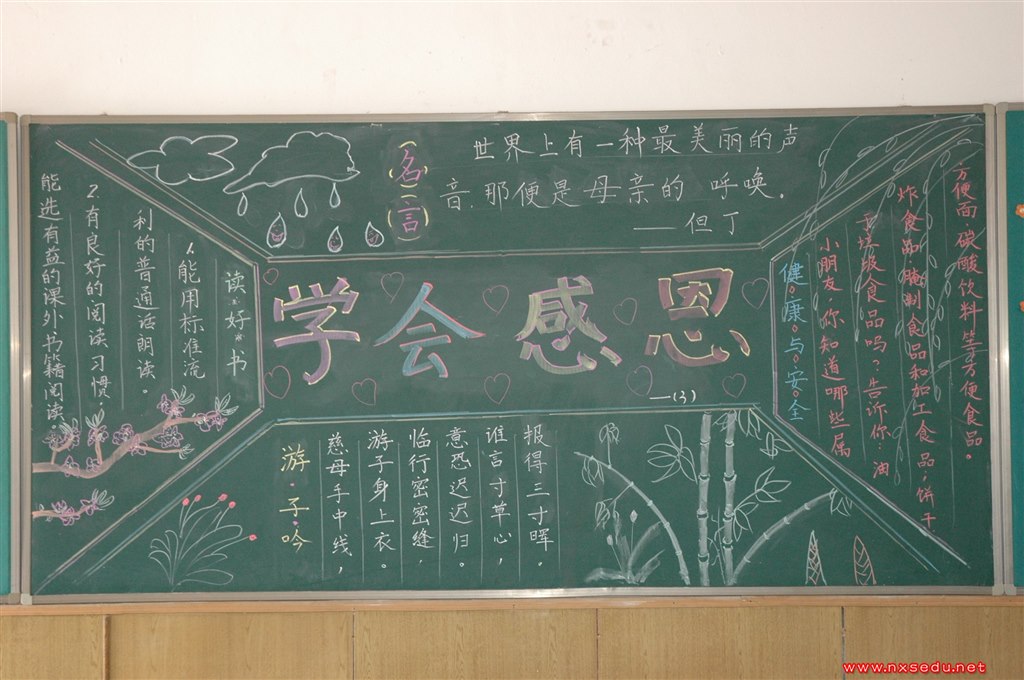 名言
世界上有一种最美丽的声
音,那便是母亲的呼唤。
——但丁
学会感恩
一(3)
读好书
1.能用标准流
利的普通话朗读。
2.有良好的阅读习惯.
能选有益的课外书籍阅读。
健康与安全
小朋友,你知道哪些属
于垃圾食品吗?告诉你:油
炸食品,腌制食品和加工食品,饼干
方便面碳酸饮料等方便食品。
游子吟
慈母手中线,
游子身上衣。
临行密密缝,
意恐迟迟归。
谁言寸草心,
报得三寸晖。
www.nxsedu.net